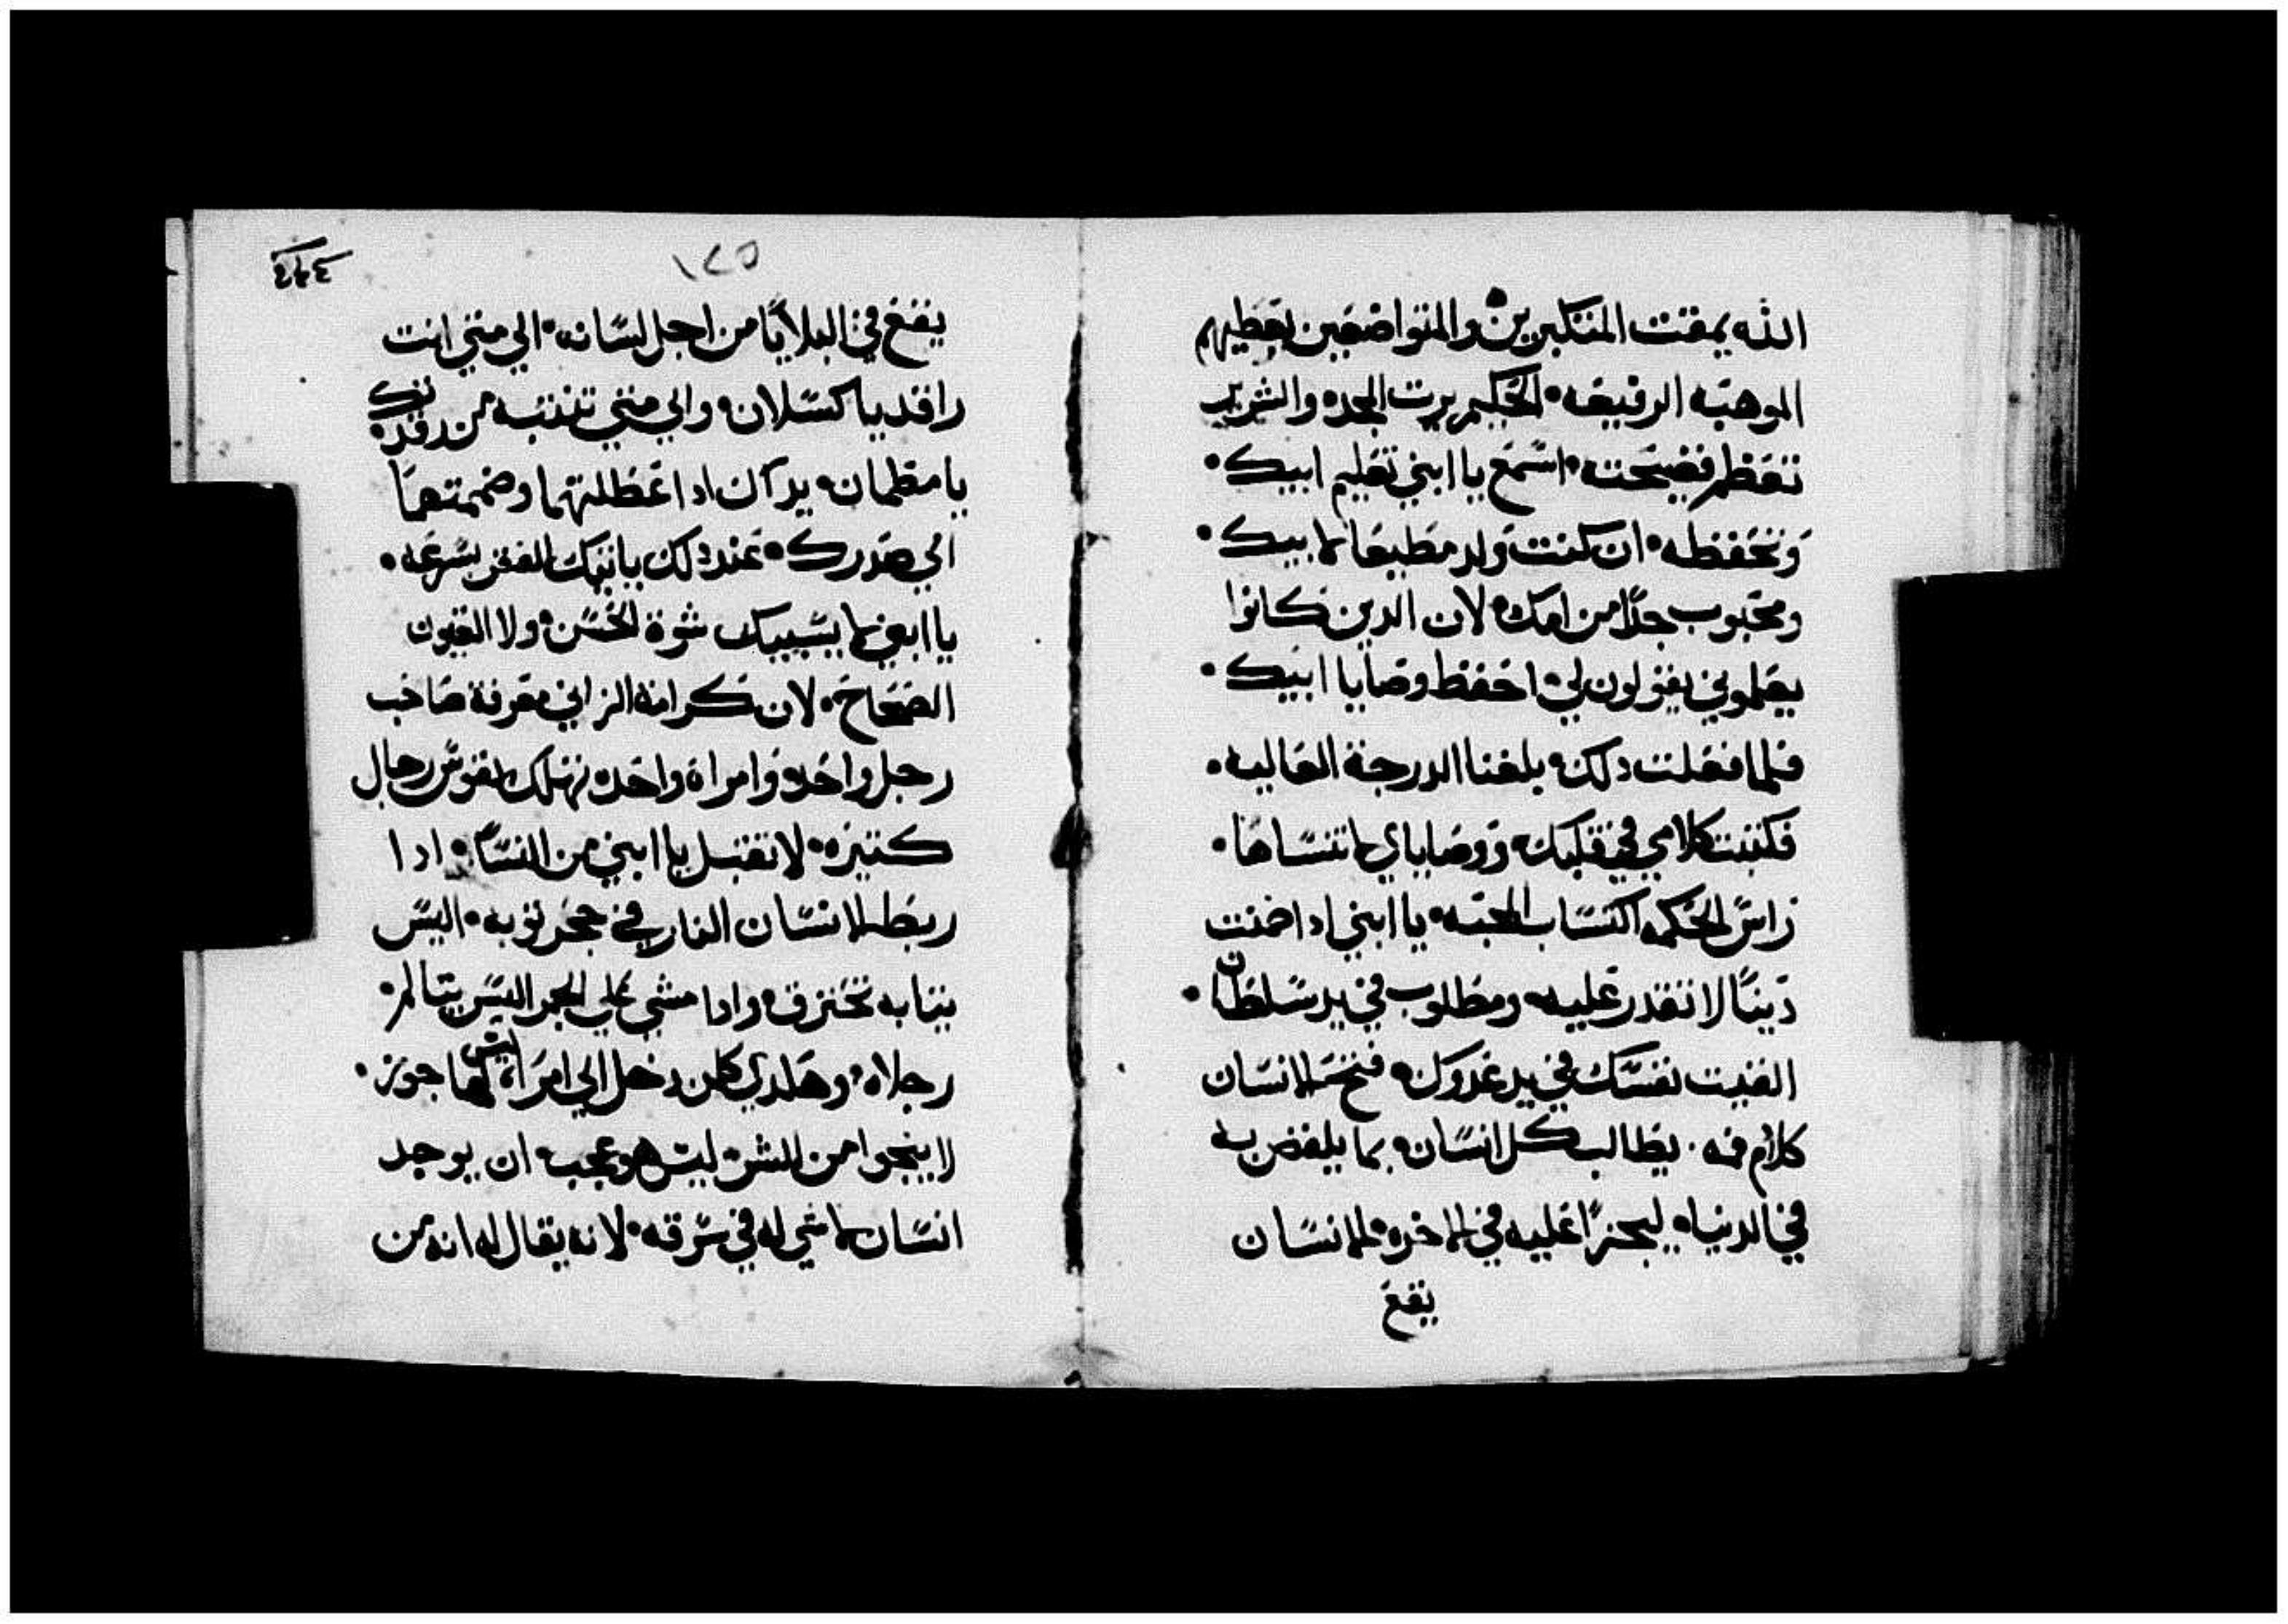 الله يمقت المتكبرين والمتواضعين يعطيهم
الموهبه الرفيعه الحكيم يرت المجد والشرير
تعظم فضيحته اسمع يا ابني تعليم ابيك
وتحفظه ان كنت ولد مطيعا لابيك
ومحبوب جدا من امك لان الدين كانوا
يعلموني يقولون لي احفظ وصايا ابيك
فلما فعلت دلك بلغنا الدرجة العاليه
فكتبت كلامي في قلبك ووصاياي لا تنساها
راس الحكمه اكتساب المحبه يا ابني ادا ضمنت
دينا لا تقدر عليه ومطلوب في يد سلطان
القيت نفسك في يد عدوك فتخسر الانسان
كلام فمه يطالب كل انسان بما يلفض به
في الدنيا ليجزا عليه في الاخره الانسان
يقع
١٢٥
يقع في البلايا من اجل لسانه الي متي انت
راقد يا كسلان والي متي تنتبه من رقدتك
يا متطمان يدان ادا عطلتهما وضممتهما
الي صدرك عند دلك ياتيك الفقر بسرعه
يا ابني لا يسبيك شوة الحسن ولا العيون
الضحاح لان كرامة الزاني معرفة صاحب
رجل واحد وامراة واحده تهلك نفوس رجال
كتيره لا تقبل يا ابني من النسا ادا
ربط الانسان النار في حجر توبه اليس
تيابه تحترق وادا مشي علي الجمر اليس يتالم
رجلاه وهكدي كلمن دخل الي امراة ليس لها جوز
لا ينجوا من الشر ليس هو عجب ان يوجد
انسان لا شي له في سرقه لانه يقال له انه من